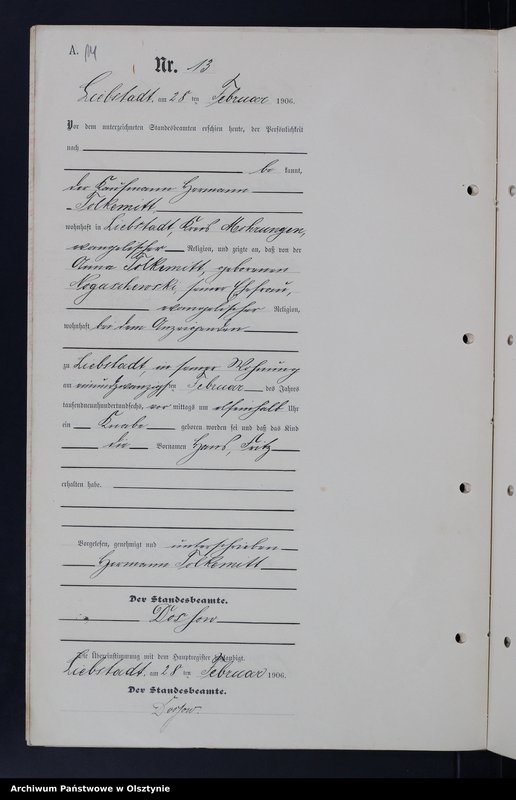 A. 14
Nr. 13
Liebstadt, am 28 ten Februar 1906.
Vor dem unterzeichneten Standesbeamten erschien heute, der Persönlichkeit
nach
be kannt,
der Kaufmann Hermann
Tolkemitt,
wohnhaft in Liebstadt, Kreis Mohrungen,
evangelischer Religion, und zeigte an, daß von der
Anna Tolkemitt, geborenen
Rogaschewski, seiner Ehefrau,
evangelischer Religion,
wohnhaft bei dem Anzeigenden
zu Liebstadt, in seiner Wohnung
am einundzwanzigsten Februar des Jahres
tausendneunhundertundsechs, vor mittags um elfeinhalb Uhr
ein Knabe geboren worden sei und daß das Kind
die Vornamen Hans, Fritz
erhalten habe.
Vorgelesen, genehmigt und unterschrieben
Hermann Tolkemitt
Der Standesbeamte.
Die Übereinstimmung mit dem Hauptregister beglaubigt.
Liebstadt, am 28 ten Februar 1906.
Der Standesbeamte.
Archiwum Państwowe w Olsztynie